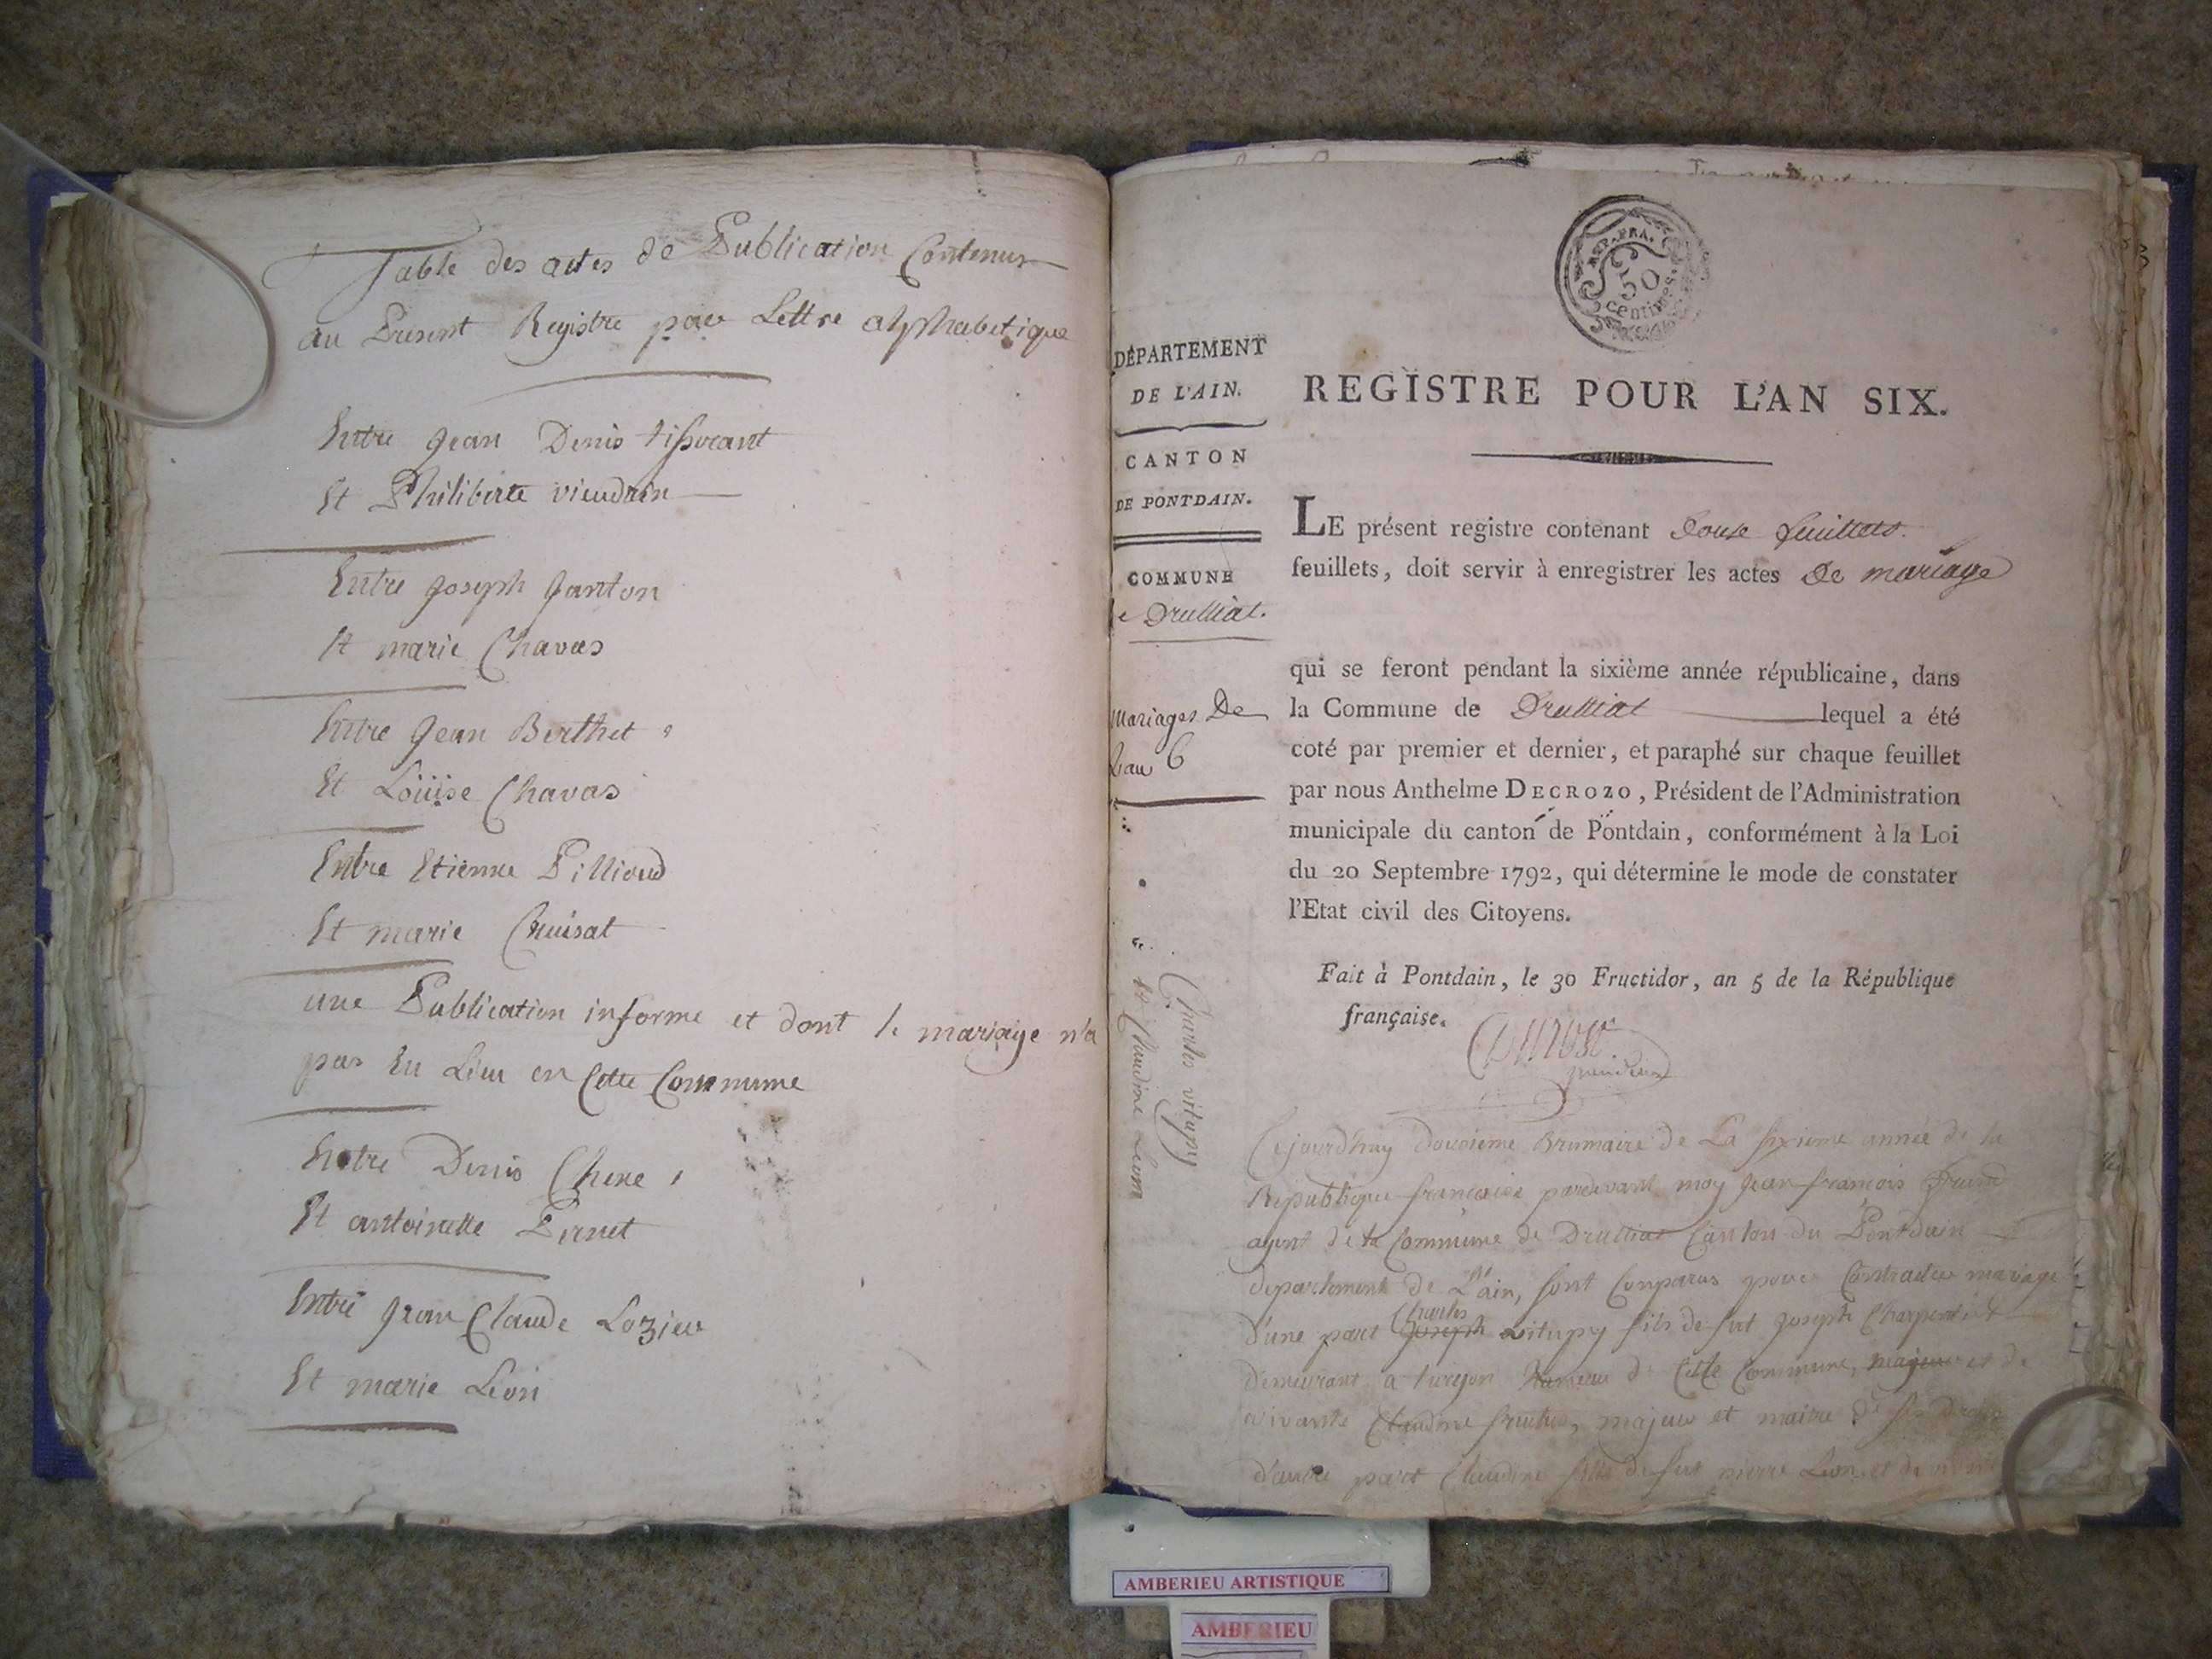 Table des actes de Publication Contenus
au Present Registre par Lettre alphabetique
Entre Jean Denis tissorant
Et Philiberte vieudrin
Entre Joseph Janton
Et marie Chavas
Entre Jean Berthet
Et Loüise Chavas
Entre Etienne Pillioud
Et marie Chuisat
une Publication informe et dont le mariage n'a
pas Eu Lieu en Cette Commune
Entre Denis Chene
Et antoinette Pernet
Entre Jean Claude Lozier
Et marie Léon
REP. FRA.
50
centimes.
DÉPARTEMENT
DE L'AIN.
CANTON
DE PONTDAIN.
COMMUNE
de Drulliat.
Mariages De
L'an 6
Charles vitupy
Et Claudine Léon
REGISTRE POUR L'AN SIX.
LE présent registre contenant Douse feuillets.
feuillets, doit servir à enregistrer les actes De mariage
qui se feront pendant la sixième année républicaine, dans
la Commune de Drulliat lequel a été
coté par premier et dernier, et paraphé sur chaque feuillet
par nous Anthelme DECROZO, Président de l'Administration
municipale du canton de Pontdain, conformément à la Loi
du 20 Septembre 1792, qui détermine le mode de constater
l'Etat civil des Citoyens.
Fait à Pontdain, le 30 Fructidor, an 5 de la République
française.
Cejourd'huy Douzieme Brumaire de La sixieme année de la
Republique françaice pardevant moy Jean françois
agent de la Commune de Drulliat Canton du Pontdain
departement de L'ain, sont Comparus pour Contracter mariage
D'une part Joseph Charles vitupy fils de fut Joseph Charpentier
Demeurant a turgon hameau de Cette Commune, majeur et de
vivante Claudine, majeur et maitre de ses Droits
d'autre part Claudine fille de fut pierre Léon et de
AMBERIEU ARTISTIQUE
AMBERIEU